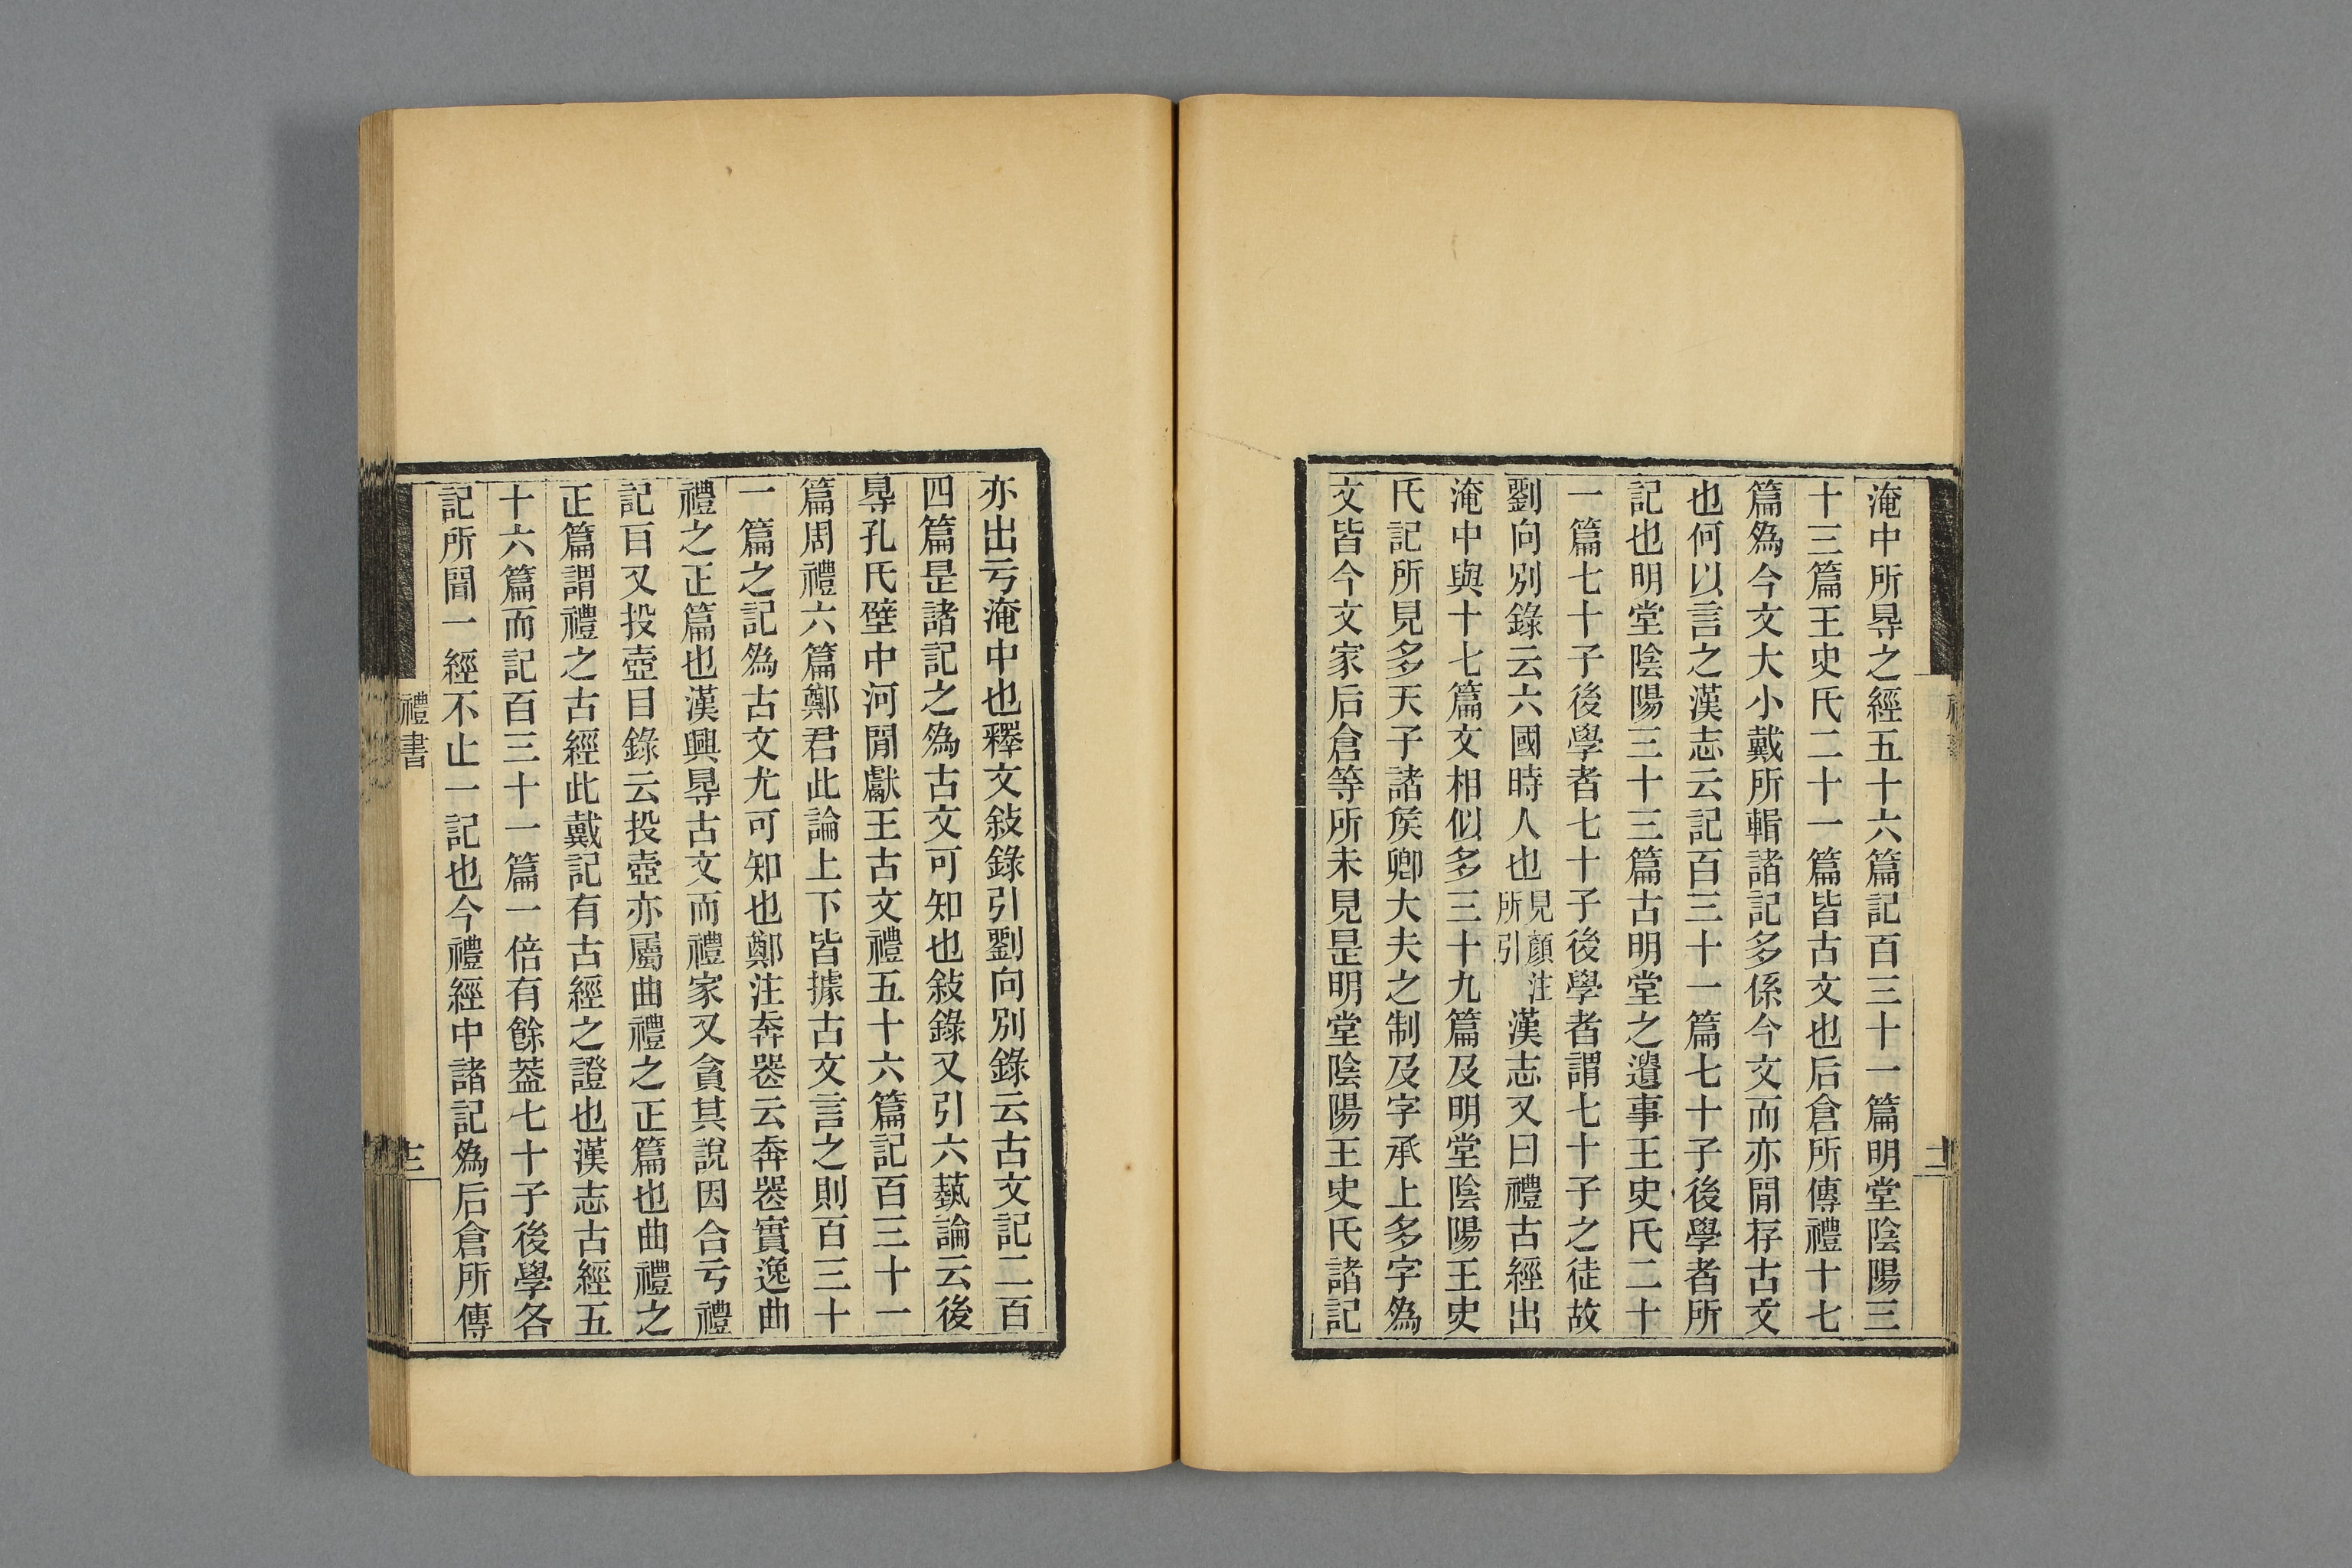 淹中所㝵之經五十六篇記百三十一篇明堂陰陽三
十三篇王史氏二十一篇皆古文也后倉所傳禮十七
篇爲今文大小戴所輯諸記多係今文而亦閒存古文
也何以言之漢志云記百三十一篇七十子後學者所
記也明堂陰陽三十三篇古明堂之遺事王史氏二十
一篇七十子後學者七十子後學者謂七十子之徒故
劉向別錄云六國時人也見顏注所引漢志又曰禮古經出
淹中與十七篇文相似多三十九篇及明堂陰陽王史
氏記所見多天子諸矦卿大夫之制及字承上多字爲
文皆今文家后倉等所未見是明堂陰陽王史氏諸記
亦出亏淹中也釋文敍錄引劉向別錄云古文記二百
四篇是諸記之爲古文可知也敍錄又引六蓺論云後
㝵孔氏壁中河閒獻王古文禮五十六篇記百三十一
篇周禮六篇鄭君此論上下皆據古文言之則百三十
一篇之記爲古文尤可知也鄭注奔喪云奔喪實逸曲
禮之正篇也漢興㝵古文而禮家又貪其說因合亏禮
記百又投壺目錄云投壺亦屬曲禮之正篇也曲禮之
正篇謂禮之古經此戴記有古經之證也漢志古經五
十六篇而記百三十一篇一倍有餘葢七十子後學各
記所聞一經不止一記也今禮經中諸記爲后倉所傳
禮書